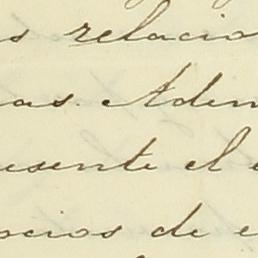 s relacio
as. Adem
esente el e
ocios de e